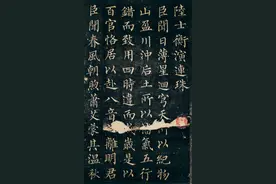 陸士衡演連珠
臣聞日薄星迴穹天所以紀物
山盈川沖后土所以氣五行
錯而致用四時違而成歲是以
百官恪居以赴八音離明君
臣聞春風朝煦蕭艾蒙其温秋